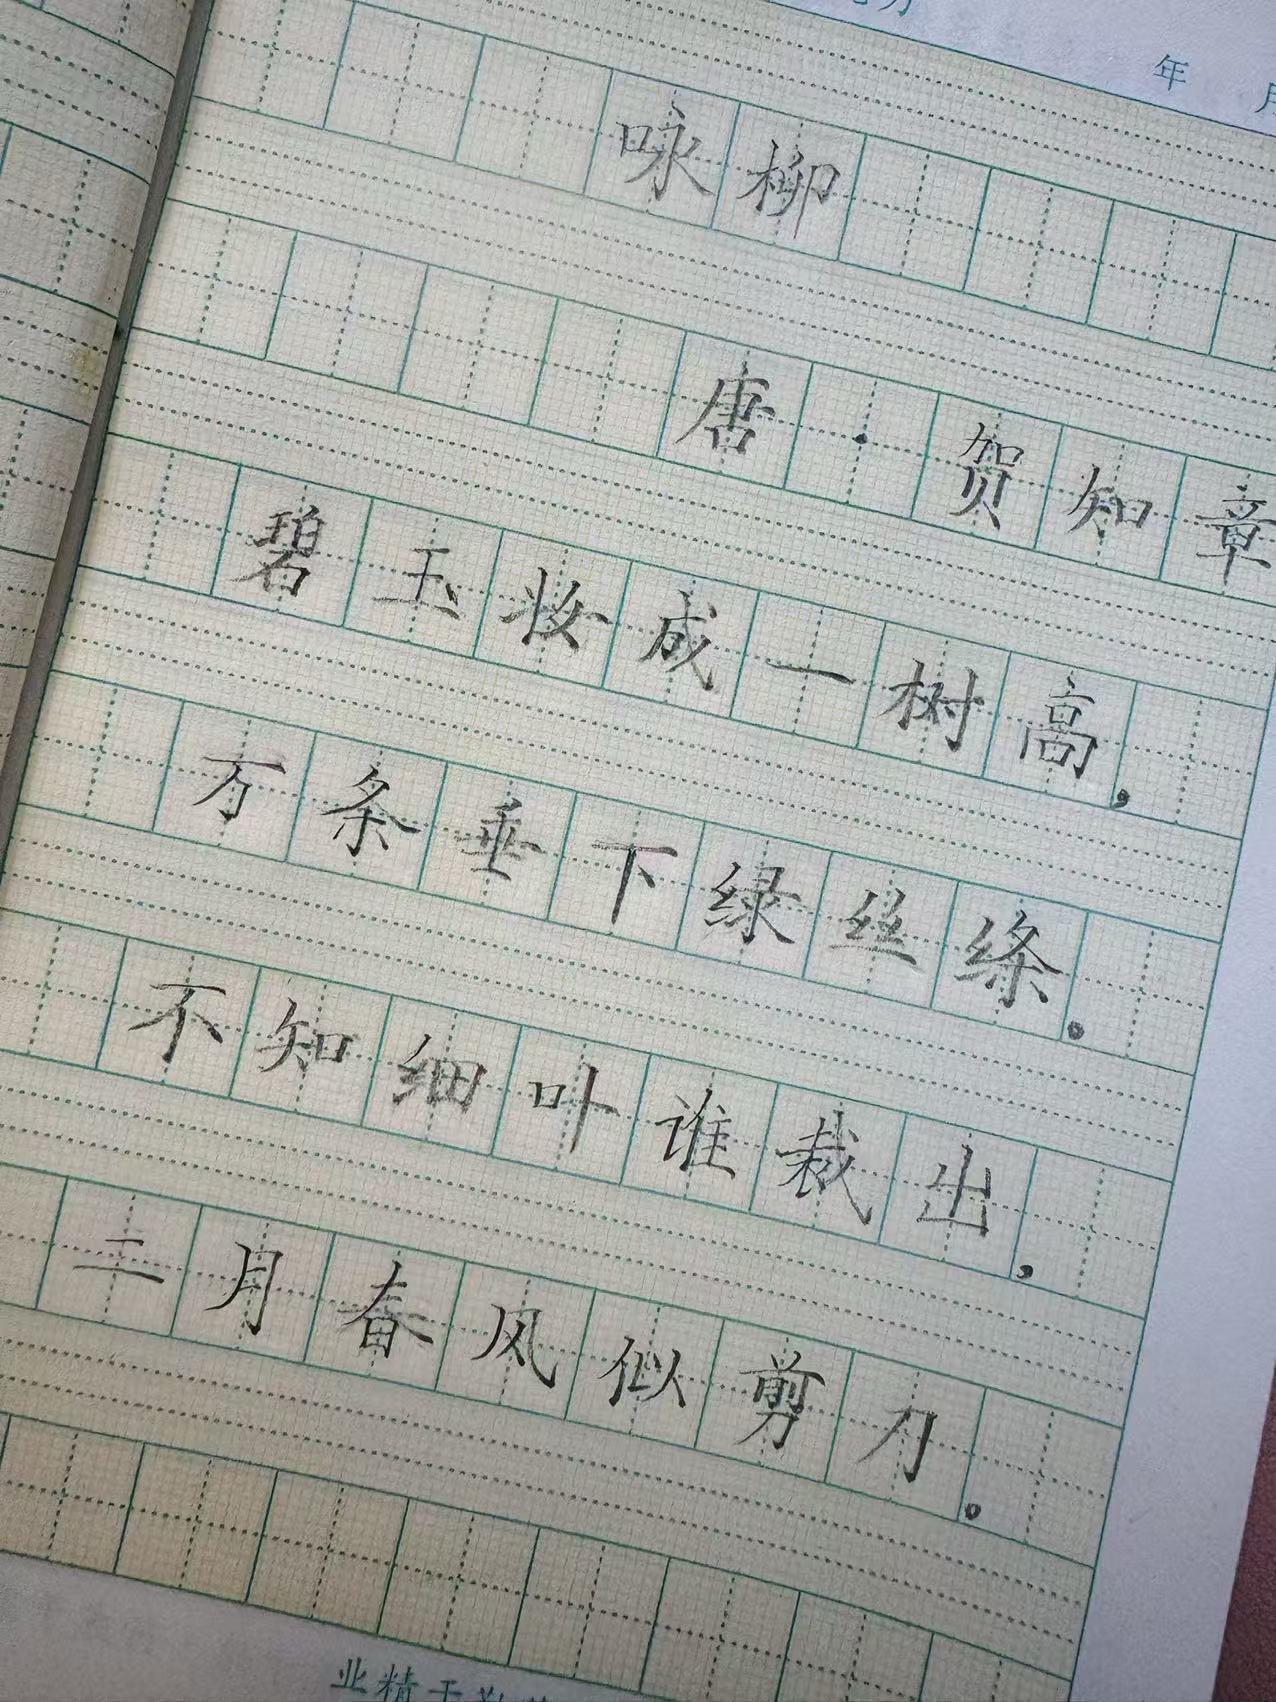 年 月
咏柳
唐·贺知章
碧玉妆成一树高，
万条垂下绿丝绦。
不知细叶谁裁出，
二月春风似剪刀。
业精于勤